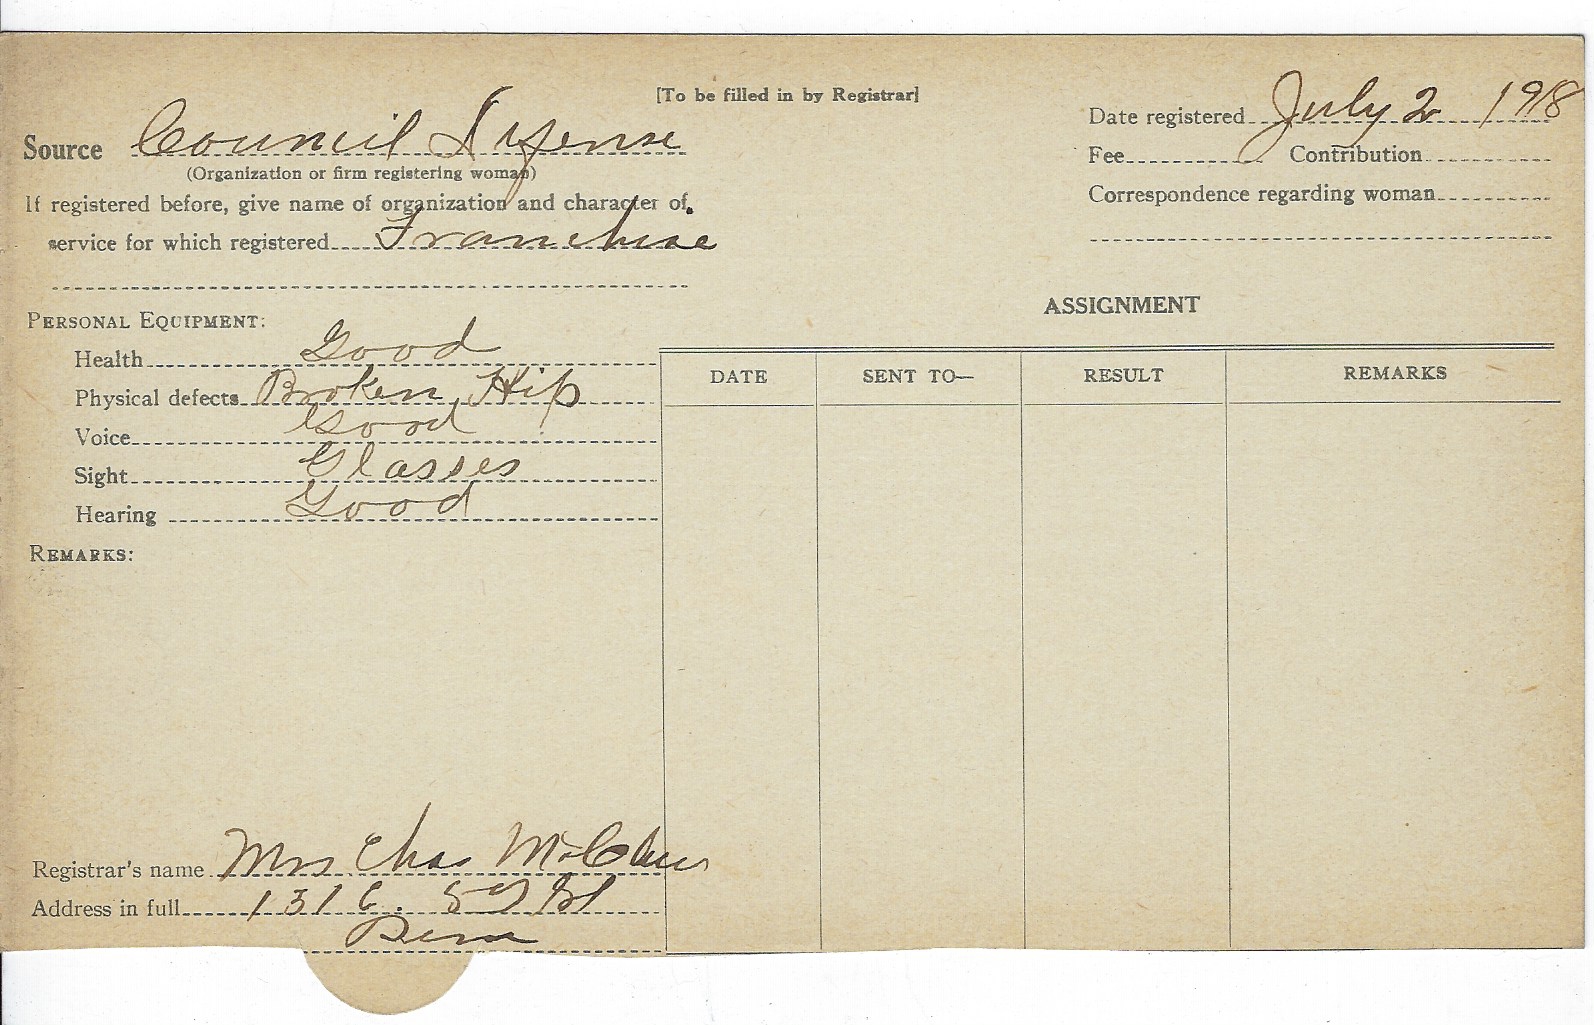 [To be filled in by Registrar]
Source Council Defense
(Organization or firm registering woman)
If registered before, give name of organization and character of
service for which registered Franchise
Date registered July 2 1918
Fee Contribution
Correspondence regarding woman
PERSONAL EQUIPMENT:
Health Good
Physical defects Broken Hip
Voice Good
Sight Glasses
Hearing Good
REMARKS:
ASSIGNMENT
DATE SENT TO— RESULT REMARKS
Registrar's name Mrs Chas
Address in full 131 St